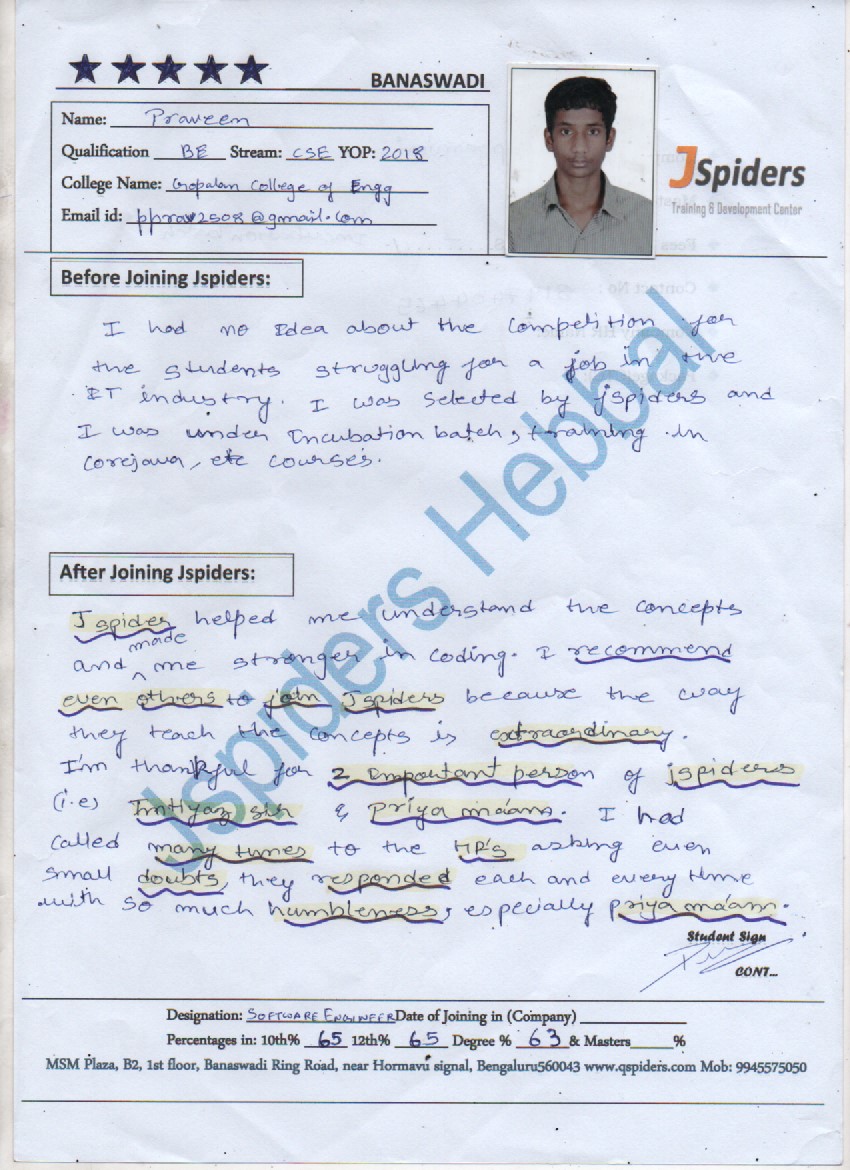 BANASWADI
Name: Praveen
Qualification BE Stream: CSE YOP: 2018
College Name: Gopalan College of Engg
Email id: pprav2508@gmail.com
JSpiders
Training & Development Center
Before Joining Jspiders:
I had no Idea about the competition for
the students struggling for a job in the
IT industry. I was selected by jspiders and
I was under Incubation batch, training in
corejava, etc courses.
After Joining Jspiders:
Jspider helped me understand the concepts
and made me stronger in coding. I recommend
even others to join Jspiders because the way
they teach the concepts is extraordinary.
I'm thankful for 2 important person of jspiders
(i.e) Imtiyaz sir & Priya ma'am. I had
called many times to the HR's asking even
small doubts, they responded each and every time
with so much humbleness, especially priya ma'am.
Student Sign
CONT...
Designation: SOFTWARE ENGINEER Date of Joining in (Company)
Percentages in: 10th% 65 12th% 65 Degree % 63 & Masters %
MSM Plaza, B2, 1st floor, Banaswadi Ring Road, near Hormavu signal, Bengaluru560043 www.qspiders.com Mob: 9945575050
Jspiders Hebbal